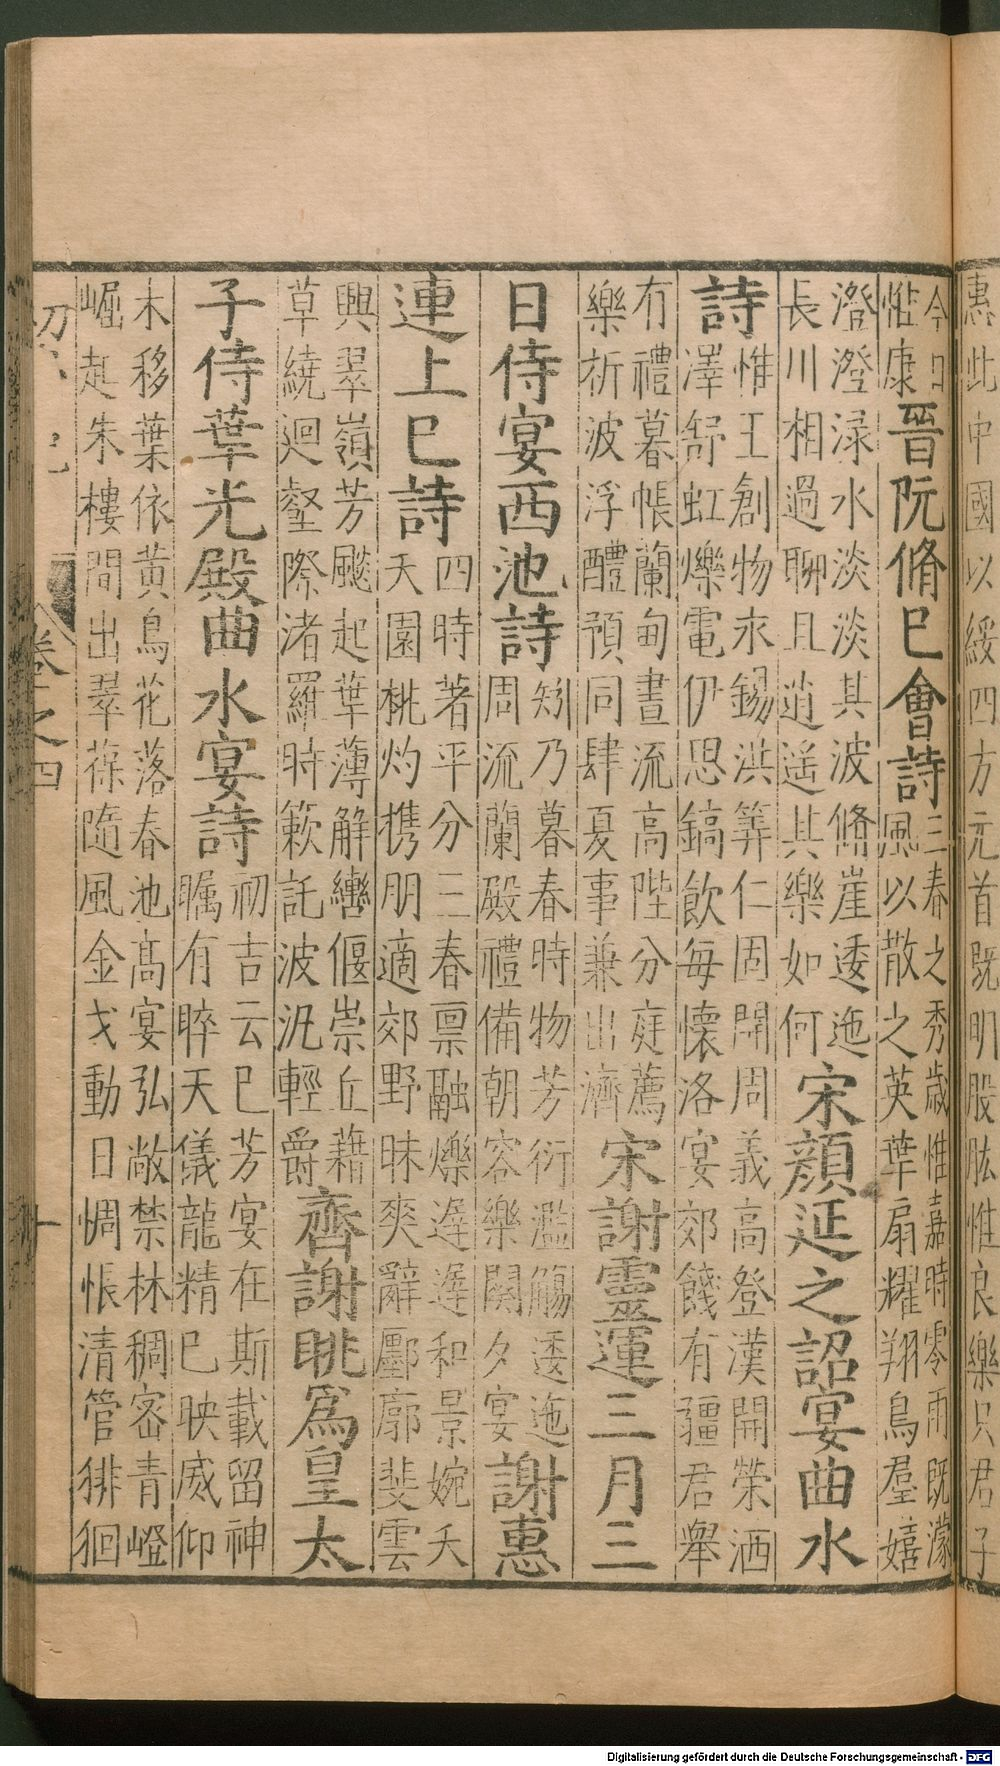 惠此中國以綏四方元首既明股肱惟良樂只君子
今日
惟康
晉阮脩巳會詩
三春之秀歲惟嘉時零雨既濛
風以散之英華扇耀翔鳥羣嬉
澄澄渌水淡淡其波脩崖逶迤
長川相過聊且逍遥其樂如何
宋顔延之詔宴曲水
詩
惟王創物永錫洪筭仁固開周義高登漢開榮洒
澤舒虹爍電伊思鎬飲每懷洛宴郊餞有疆君舉
有禮暮帳蘭甸晝流高陛分庭薦
樂祈波浮醴預同肆夏事兼出濟
宋謝靈運三月三
日侍宴西池詩
矧乃暮春時物芳衍濫觴逶迤
周流蘭殿禮備朝容樂闋夕宴
謝惠
連上巳詩
四時著平分三春禀融爍遲遲和景婉夭
天園桃灼携朋適郊野昧爽辭鄽廓斐雲
興翠嶺芳飈起華薄解轡偃崇丘藉
草繞迴壑際渚羅時簌託波汎輕爵
齊謝眺爲皇太
子侍華光殿曲水宴詩
初吉云巳芳宴在斯載留神
矚有睟天儀龍精巳映威仰
木移葉依黄鳥花落春池高宴弘敞禁林稠密青嶝
崛起朱樓間出翠葆隨風金戈動日惆悵清管徘徊
卷之四
十
Digitalisierung gefördert durch die Deutsche Forschungsgemeinschaft - DFG